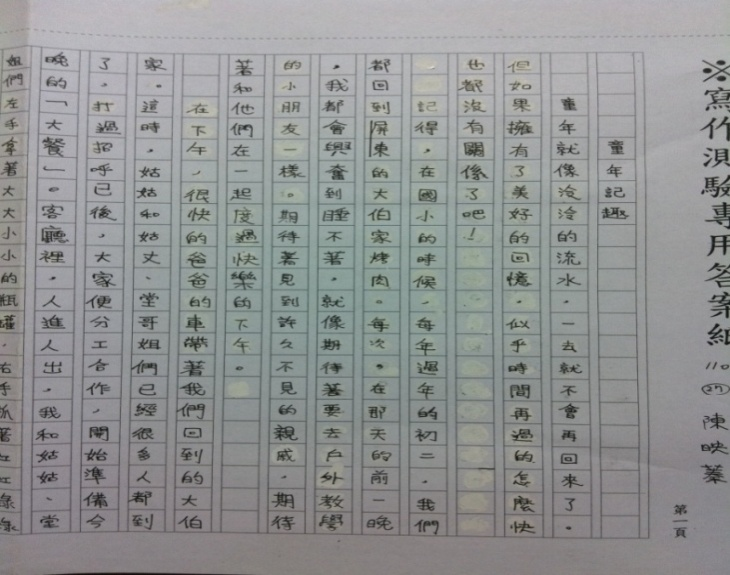 ※寫作測驗專用答案紙 110 ㉗ 陳映蓁
第一頁
童年記趣
童年就像泠泠的流水,一去就不會再回來了。
但如果擁有了美好的回憶,似乎時間再過的怎麼快
也都沒有關係了吧!
記得,在國小的時候,每年過年的初二,我們
都回到屏東的大伯家烤肉。每次,在那天的前一晚
,我都會興奮到睡不著,就像期待著要去戶外教學
的小朋友一樣。期待著見到許久不見的親戚,期待
著和他們在一起度過快樂的下午。
在下午,很快的爸爸的車帶著我們回到的大伯
家。這時,姑姑和姑丈、堂哥姐們已經很多人都到
了,打過招呼已後,大家便分工合作,開始準備今
晚的「大餐」。客廳裡,人進人出,我和姑姑、堂
姐們左手拿著大大小小的瓶罐,右手抓著紅紅綠綠